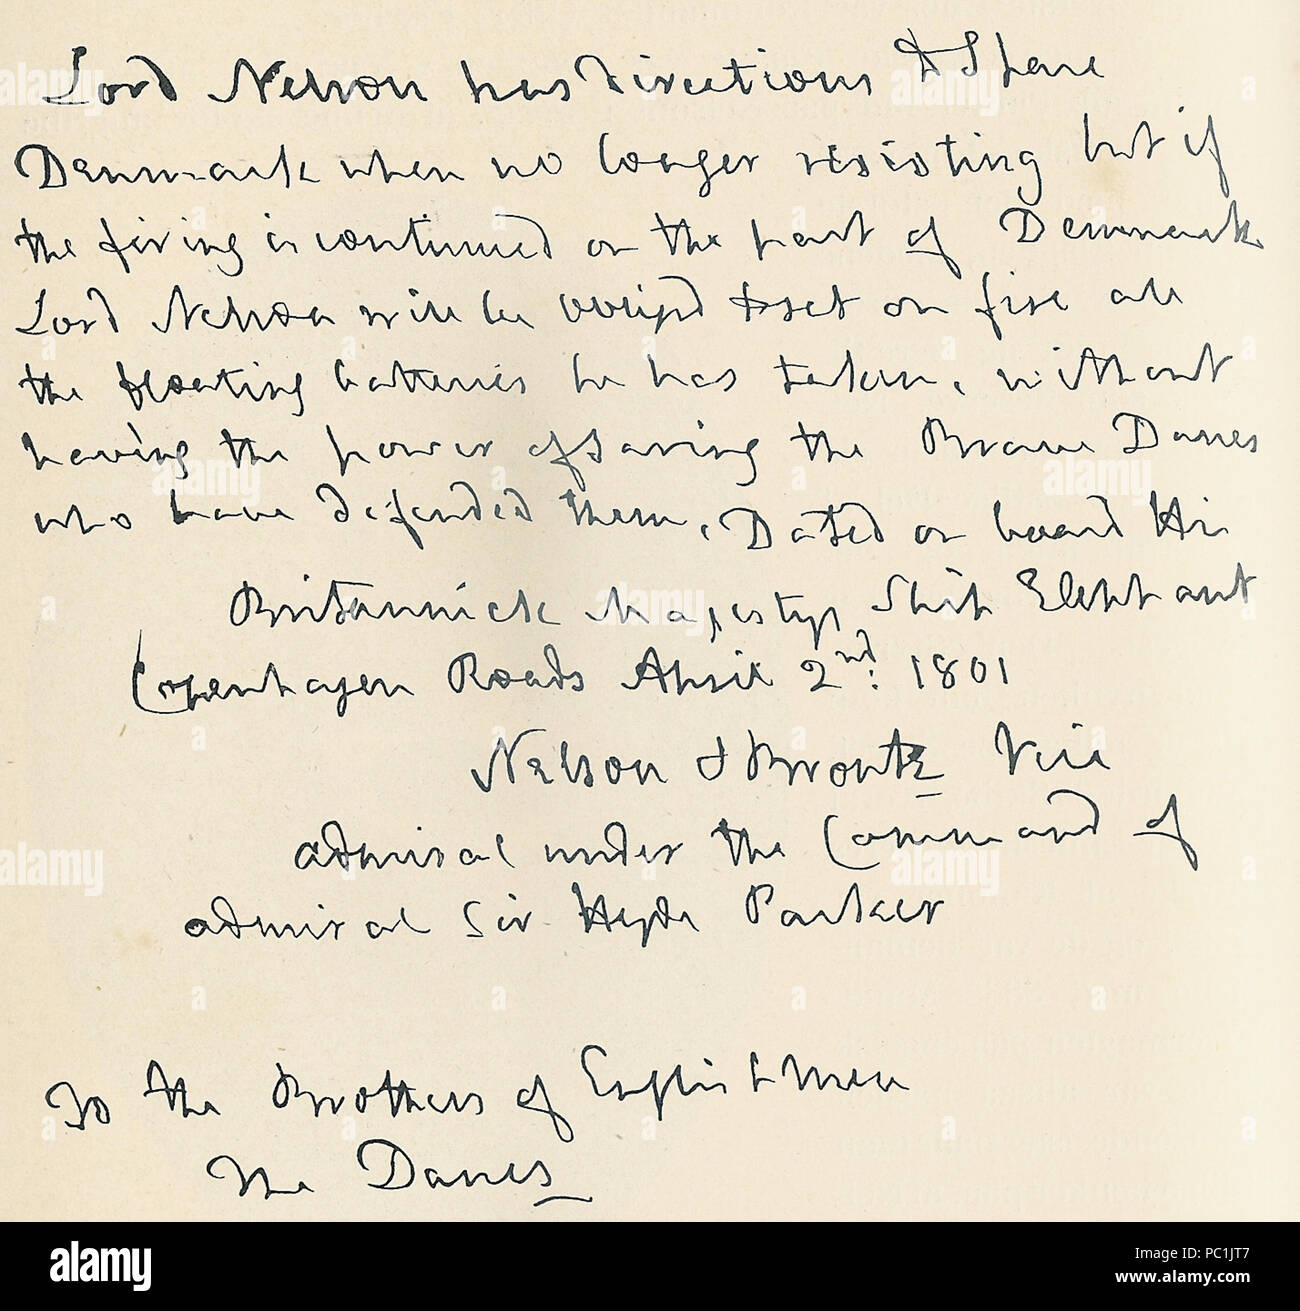 Lord Nelson has directions to Spare
Denmark when no longer resisting but if
the firing is continued on the part of Denmark
Lord Nelson will be obliged to set on fire all
the floating batteries he has taken, without
having the power of Saving the Brave Danes
who have defended them. Dated on board His
Britannick Majestys Ship Elephant
Copenhagen Roads April 2nd: 1801
Nelson & Bronte Vice
admiral under the Command of
admiral Sir Hyde Parker
To the Brothers of Englishmen
The Danes
alamy
Image ID: PC1JT7
www.alamy.com